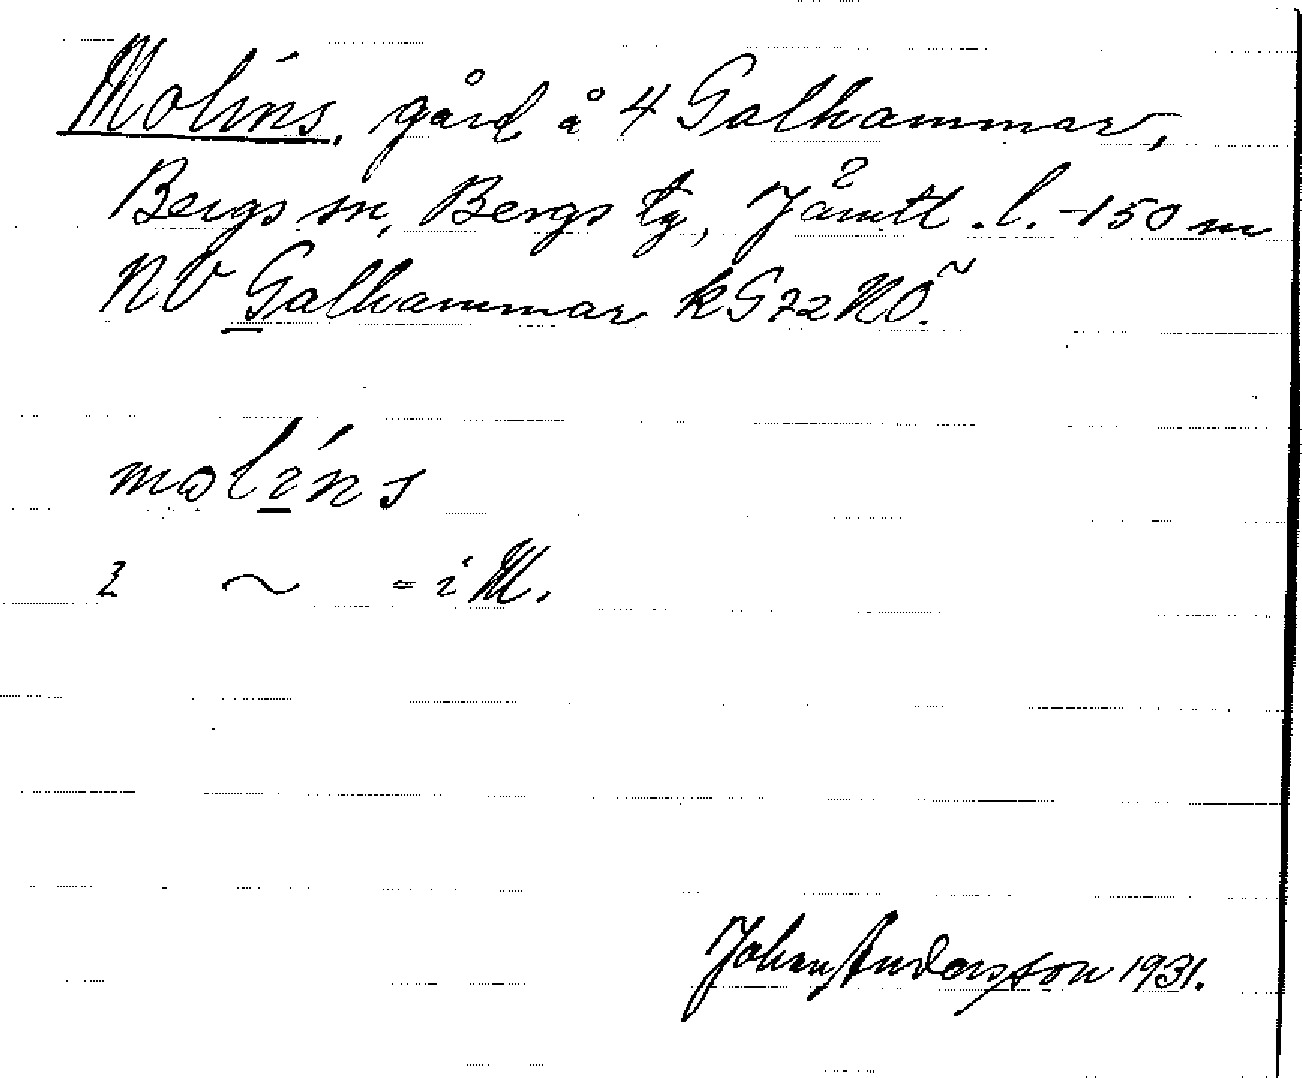 Molins, gård å 4 Galhammar,
Bergs sn, Bergs tg, Jämtl. l. -150 m
NV Galhammar k G72NÖ.
molíns
i ~ = i M.
Johan Andersson 1931.